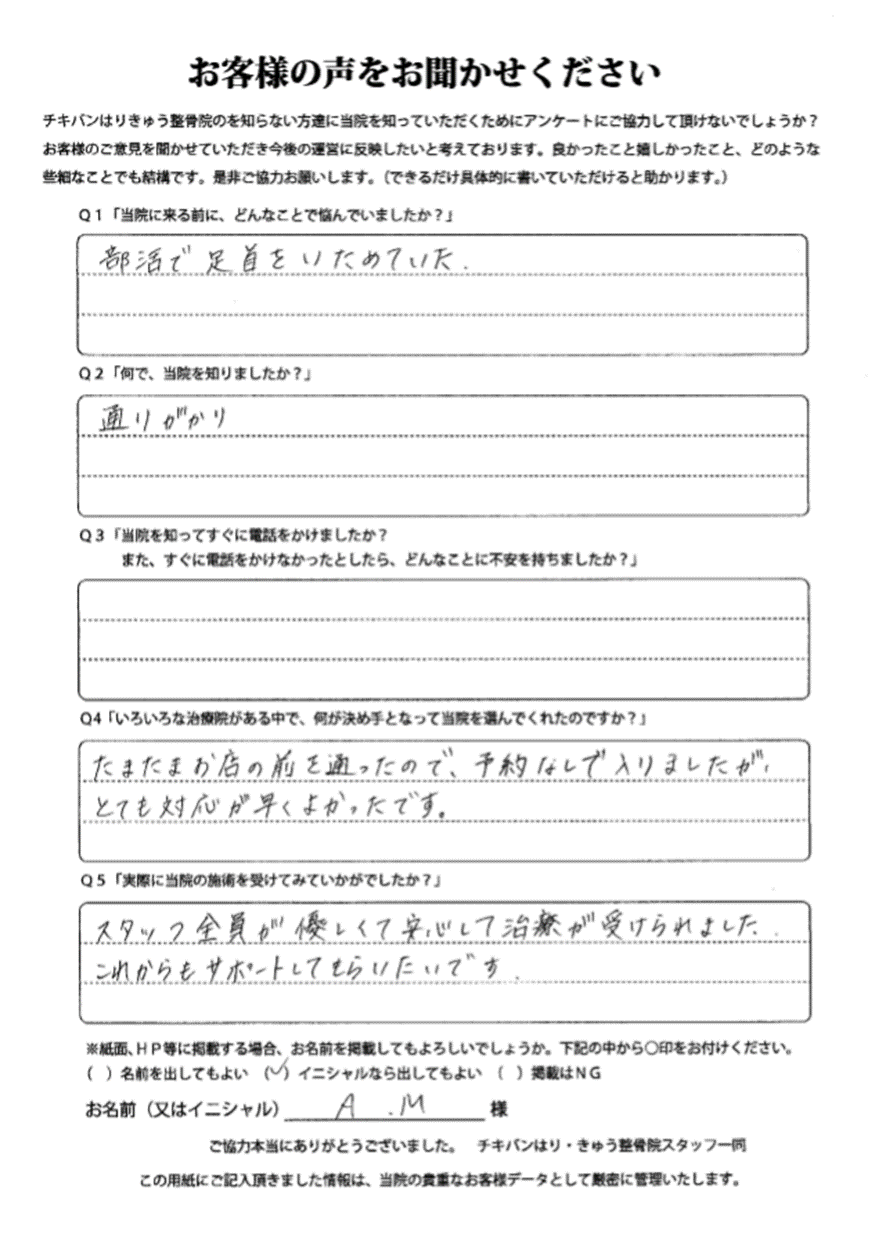 お客様の声をお聞かせください
チキバンはりきゅう整骨院のを知らない方達に当院を知っていただくためにアンケートにご協力して頂けないでしょうか？
お客様のご意見を聞かせていただき今後の運営に反映したいと考えております。良かったこと嬉しかったこと、どのような
些細なことでも結構です。是非ご協力お願いします。（できるだけ具体的に書いていただけると助かります。）
Q1「当院に来る前に、どんなことで悩んでいましたか？」
部活で足首をいためていた.
Q2「何で、当院を知りましたか？」
通りがかり
Q3「当院を知ってすぐに電話をかけましたか？
また、すぐに電話をかけなかったとしたら、どんなことに不安を持ちましたか？」
Q4「いろいろな治療院がある中で、何が決め手となって当院を選んでくれたのですか？」
たまたまお店の前を通ったので、予約なしで入りましたが、
とても対応が早くよかったです。
Q5「実際に当院の施術を受けてみていかがでしたか？」
スタッフ全員が優しくて安心して治療が受けられました.
これからもサポートしてもらいたいです.
※紙面、HP等に掲載する場合、お名前を掲載してもよろしいでしょうか。下記の中から○印をお付けください。
（ ）名前を出してもよい （✓）イニシャルなら出してもよい （ ）掲載はNG
お名前（又はイニシャル） A .M 様
ご協力本当にありがとうございました。 チキバンはり・きゅう整骨院スタッフ一同
この用紙にご記入頂きました情報は、当院の貴重なお客様データとして厳密に管理いたします。